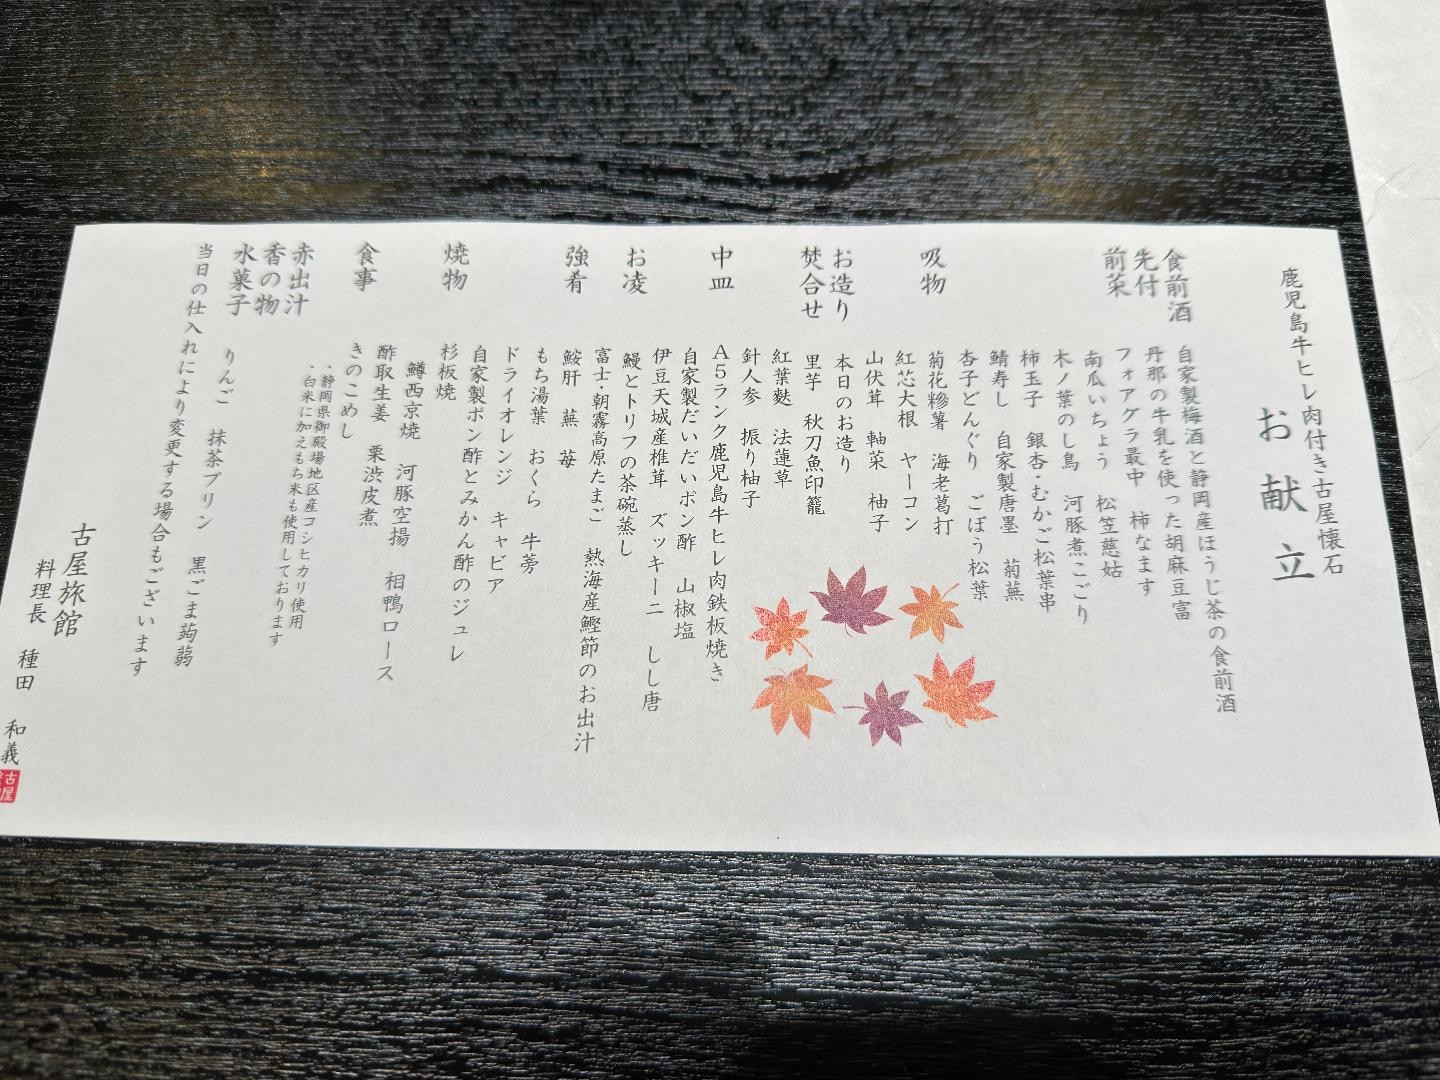 鹿児島牛ヒレ肉付き古屋懐石
お献立
食前酒　自家製梅酒と静岡産ほうじ茶の食前酒
先付　丹那の牛乳を使った胡麻豆富
前菜　フォアグラ最中　柿なます
南瓜いちょう　松笠慈姑
木ノ葉のし鳥　河豚煮こごり
柿玉子　銀杏・むかご松葉串
鯖寿し　自家製唐墨　菊蕪
杏子どんぐり　ごぼう松葉
吸物　菊花糝薯　海老葛打
紅芯大根　ヤーコン
山伏茸　軸菜　柚子
お造り　本日のお造り
焚合せ　里芋　秋刀魚印籠
紅葉麩　法蓮草
針人参　振り柚子
中皿　A5ランク鹿児島牛ヒレ肉鉄板焼き
自家製だいだいポン酢　山椒塩
伊豆天城産椎茸　ズッキーニ　しし唐
お凌　鰻とトリフの茶碗蒸し
富士・朝霧高原たまご　熱海産鰹節のお出汁
強肴　鮟肝　蕪　苺
もち湯葉　おくら　牛蒡
ドライオレンジ　キャビア
自家製ポン酢とみかん酢のジュレ
焼物　杉板焼
鱒西京焼　河豚空揚　相鴨ロース
酢取生姜　栗渋皮煮
食事　きのこめし
・静岡県御殿場地区産コシヒカリ使用
・白米に加えもち米も使用しております
赤出汁
香の物
水菓子　りんご　抹茶プリン　黒ごま蒟蒻
当日の仕入れにより変更する場合もございます
古屋旅館
料理長　種田　和義
古屋